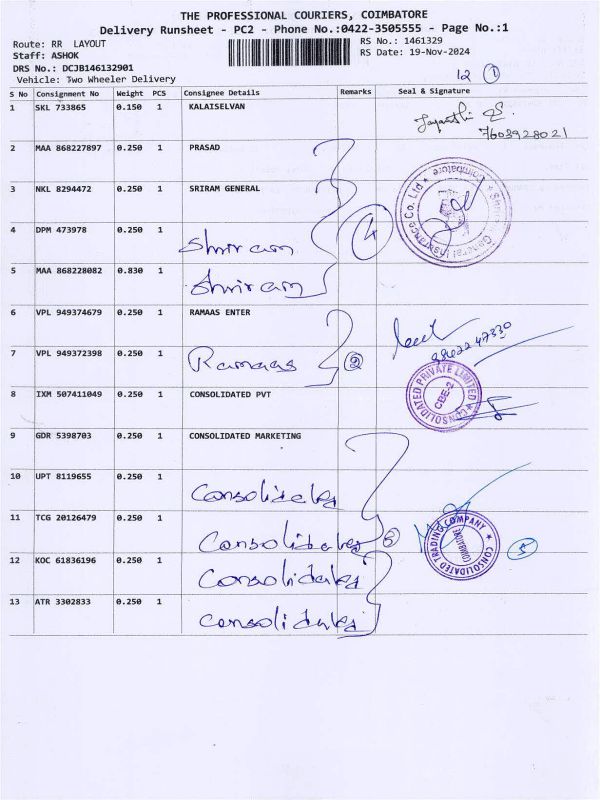 THE PROFESSIONAL COURIERS, COIMBATORE
Delivery Runsheet - PC2 - Phone No.:0422-3505555 - Page No.:1
Route: RR LAYOUT
RS No.: 1461329
Staff: ASHOK
RS Date: 19-Nov-2024
DRS No.: DCJB146132901
Vehicle: Two Wheeler Delivery
12 1
S No Consignment No Weight PCS Consignee Details Remarks Seal & Signature
1 SKL 733865 0.150 1 KALAISELVAN
7603928021
2 MAA 868227897 0.250 1 PRASAD
3 NKL 8294472 0.250 1 SRIRAM GENERAL
4 DPM 473978 0.250 1 Shriram 4
Shriram General Insurance Co. Ltd * Coimbatore *
5 MAA 868228082 0.830 1 Shriram
6 VPL 949374679 0.250 1 RAMAAS ENTER
7 VPL 949372398 0.250 1 Ramaas 2
8 IXM 507411049 0.250 1 CONSOLIDATED PVT
CONSOLIDATED PRIVATE LIMITED * CBE-2
9 GDR 5398703 0.250 1 CONSOLIDATED MARKETING
10 UPT 8119655 0.250 1
11 TCG 20126479 0.250 1
CONSOLIDATED TRADING COMPANY * COIMBATORE
5
12 KOC 61836196 0.250 1
13 ATR 3302833 0.250 1